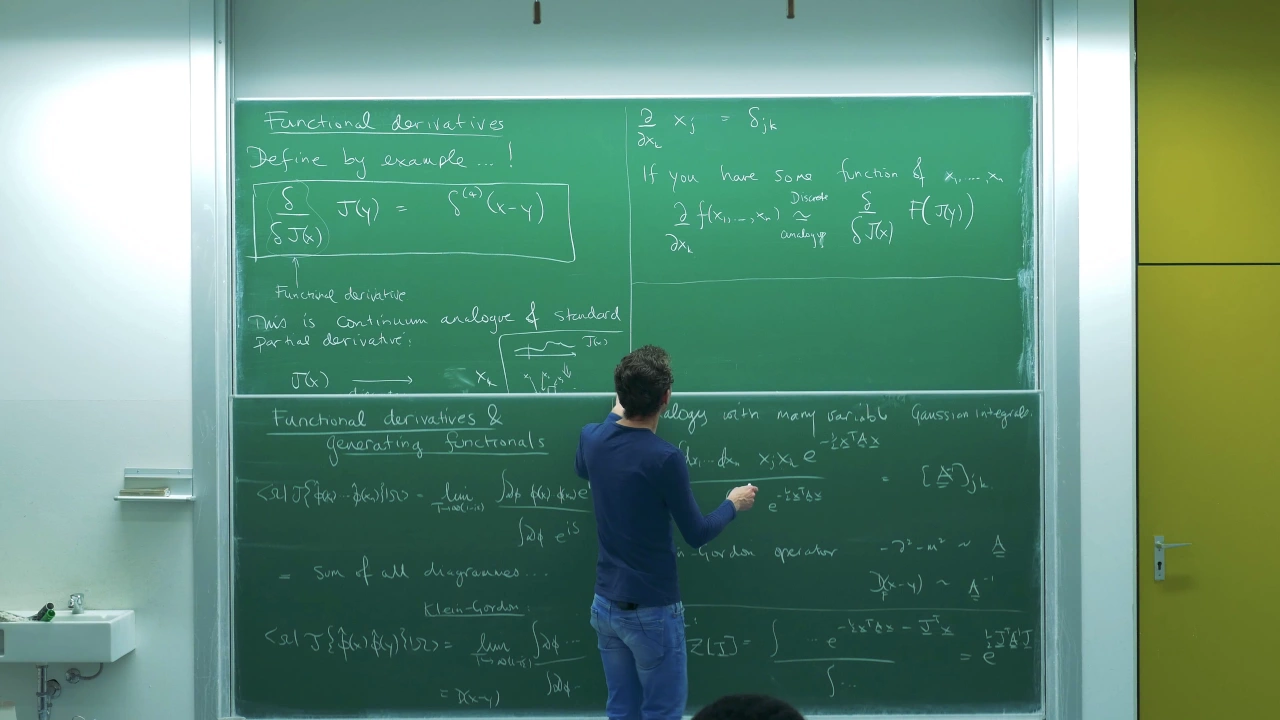 Functional derivatives
Define by example ... !
δ/δJ(x) J(y) = δ⁽⁴⁾(x-y)
Functional derivative
This is continuum analogue of standard
partial derivative:
J(x) → x_k
J(x)
∂/∂x_k x_j = δ_jk
If you have some function of x₁, ..., xₙ
∂/∂x_k f(x₁, ..., xₙ) ≃ δ/δJ(x) F(J(y))
Discrete
analogue
Functional derivatives &
generating functionals
= lim ∫Dϕ ϕ(x₁)...ϕ(xₙ) e / ∫Dϕ e^{iS}
= Sum of all diagrammes ...
Klein-Gordon:
<Ω|T{ϕ̂(x)ϕ̂(y)}|Ω> = lim ∫Dϕ ... / ∫Dϕ ...
= D(x-y)
with many variable Gaussian integrals.
dx₁...dxₙ x_j x_k e^{-½xᵀAx} / e^{-½xᵀAx} = [A⁻¹]_jk
-Gordon operator -∂²-m² ~ A
D(x-y) ~ A⁻¹
Z[J] = ∫ ... e^{-½xᵀAx - Jᵀx} / ∫ ... = e^{½JᵀA⁻¹J}